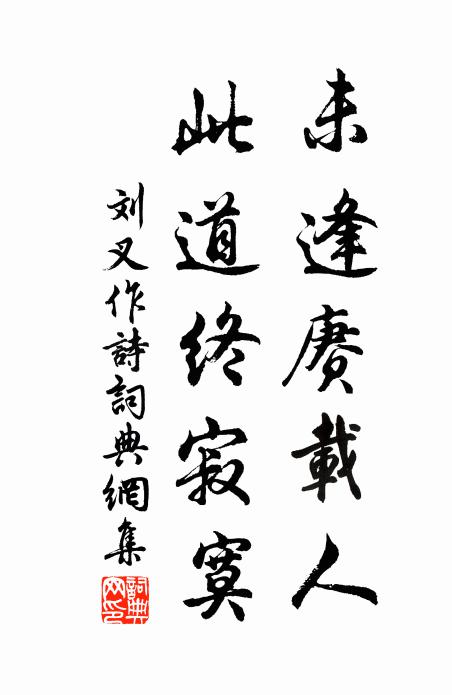 未逢賡載人
此道終寂寞
刘叉作詩詞典網集
詞典網印